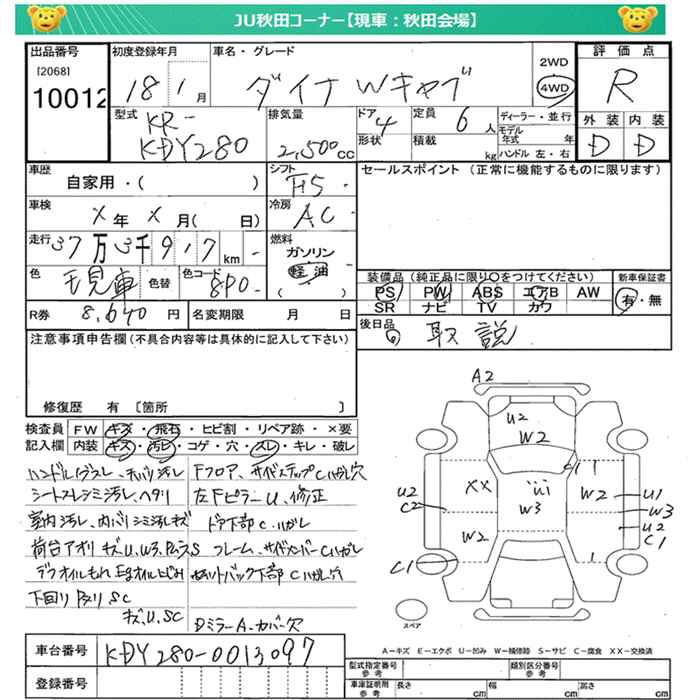 JU秋田コーナー【現車：秋田会場】
出品番号 初度登録年月 車名・グレード 評価点
[2068]
10012
18年1月
ダイナ Wキャブ
2WD
4WD
R
型式 排気量 ドア 定員 ディーラー・並行 外装 内装
KR-
KDY280
2,500cc
4
6人
モデル年式 年
形状 積載 kg ハンドル 左・右
D D
車歴 シフト セールスポイント（正常に機能するものに限ります）
自家用・( )
F5
車検 冷房
X年X月( 日)
AC
走行 燃料
37万3千917km
ガソリン
軽油
( )
色 色替 色コード
現車
890
装備品（純正品に限り○をつけてください） 新車保証書
PS PW ABS エアB AW
SR ナビ TV カワ
有・無
R券 8,640円 名変期限 月 日
後日品
取説
注意事項申告欄（不具合内容等は具体的に記入して下さい）
修復歴 有 〔箇所 〕
検査員記入欄
FW キズ・飛石・ヒビ割・リペア跡・×要
内装 キズ・汚レ・コゲ・穴・スレ・キレ・破レ
シートスレシミ汚レ、ヘタリ
左Fピラー U、修正
ドア下部 C、ハガレ
荷台アオリ キズ U、W3
フレーム、サイドメンバー C ハガレ
下回り
キズ、U、SC
Dミラー A、カバー欠
A2
U2
W2
C1
XX
W3
W2
U1
W3
U2
C2
U2
C1
W2
C1
スペア
A－キズ E－エクボ U－凹み W－補修跡 S－サビ C－腐食 XX－交換済
車台番号 KDY280-0013097
登録番号
型式指定番号 参考 類別区分番号 参考
車庫証明用 参考 長さ cm 幅 cm 高さ cm